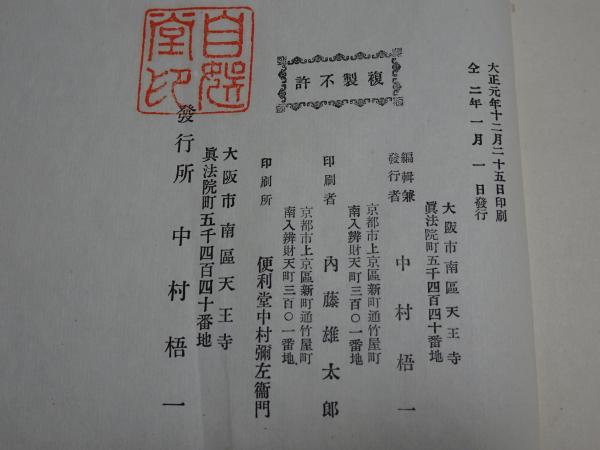 大正元年十二月二十五日印刷
仝 二年 一月 一 日發行
大阪市南區天王寺
眞法院町五千四百四十番地
編輯兼
發行者 中村梧一
京都市上京區新町通竹屋町
南入辨財天町三百〇一番地
印刷者 內藤雄太郎
京都市上京區新町通竹屋町
南入辨財天町三百〇一番地
印刷所 便利堂中村彌左衞門
複製不許
大阪市南區天王寺
眞法院町五千四百四十番地
發行所 中村梧一
堂印